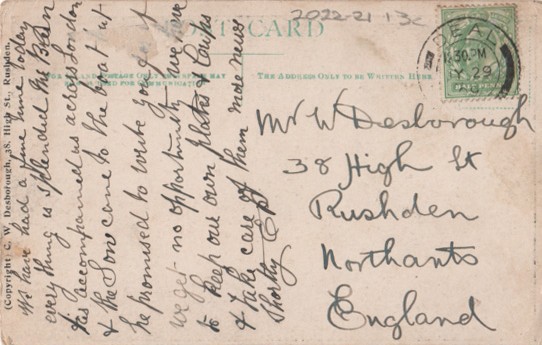 POST CARD
2022-21 13c
FOR INLAND POSTAGE ONLY THIS SPACE MAY
BE USED FOR COMMUNICATION
THE ADDRESS ONLY TO BE WRITTEN HERE
DEAL
30 PM
29
HALFPENNY
(Copyright: C. W. Desborough, 38, High St., Rushden.)
We have had a fine time today
every thing is splendid the Baron
has accompanied us across London
& the Son came to the boat but
he promised to write you as
we get no opportunity we have
to keep our own plates & cups
& take care of them more news
shortly
Mr W Desborough
38 High St
Rushden
Northants
England